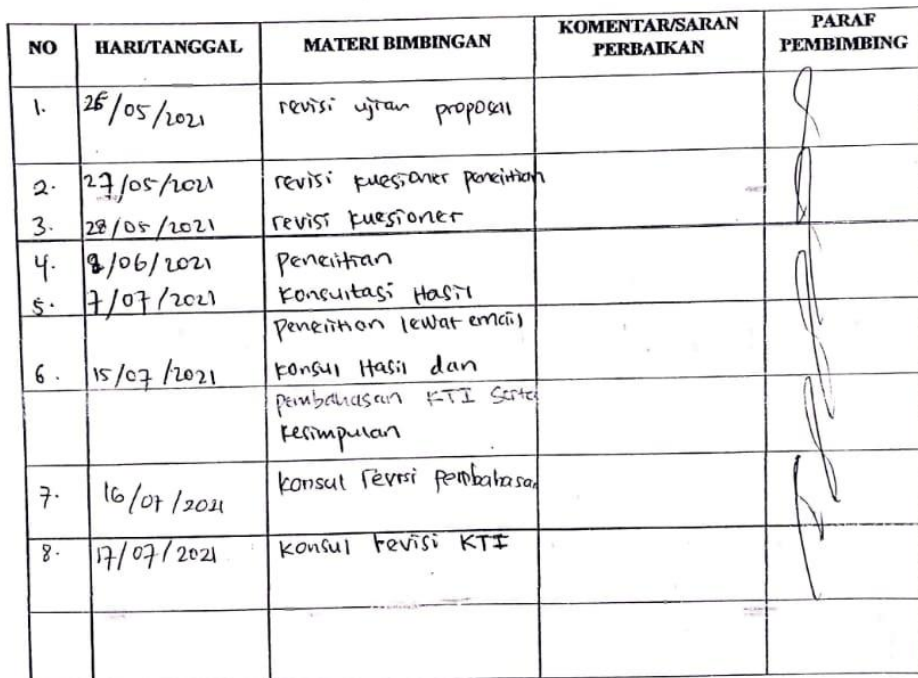 NO HARI/TANGGAL MATERI BIMBINGAN KOMENTAR/SARAN PERBAIKAN PARAF PEMBIMBING
1. /05/2021 revisi ujian proposal
2. 27/05/2021 revisi kuesioner penelitian
3. 28/05/2021 revisi kuesioner
4. /06/2021 penelitian
5. 7/07/2021 Konsultasi Hasil
penelitian lewat email
6. 15/07/2021 konsul Hasil dan
pembahasan KTI serta
kesimpulan
7. 16/07/2021 konsul revisi pembahasan
8. 17/07/2021 konsul revisi KTI